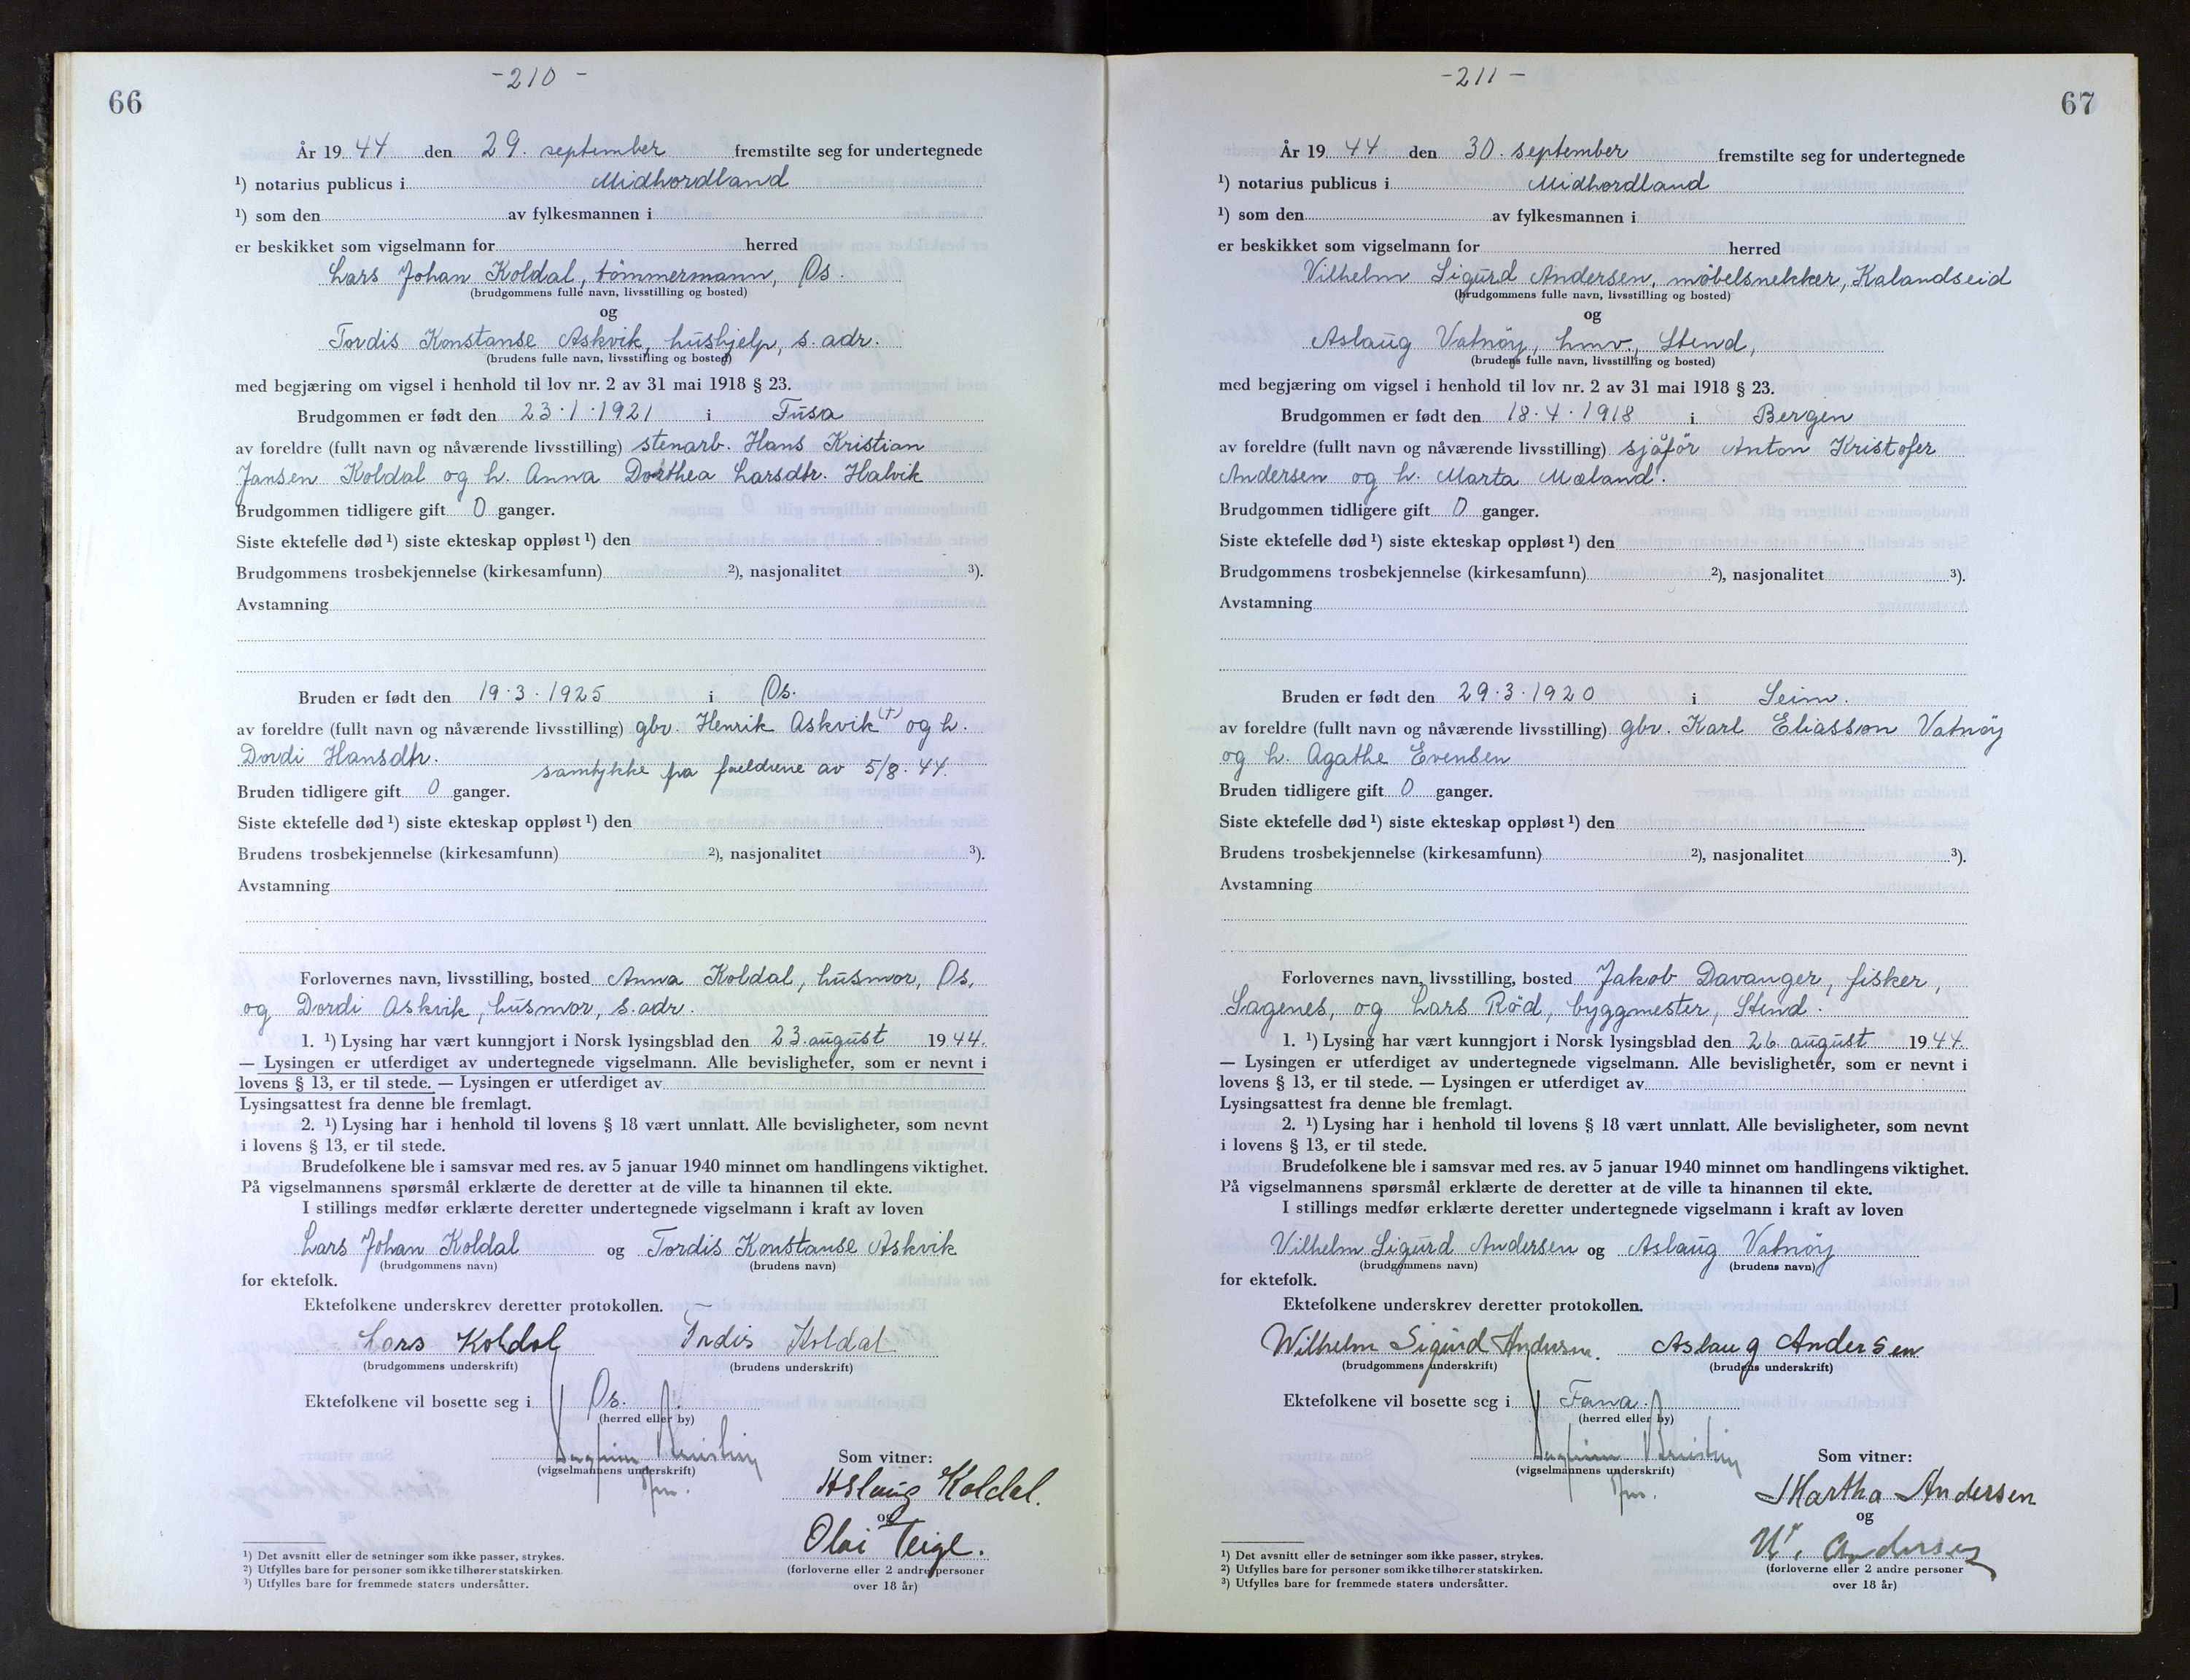 66
-210-
År 19 44 den 29. september fremstilte seg for undertegnede
¹) notarius publicus i Midhordland
¹) som den av fylkesmannen i
er beskikket som vigselmann for herred
Lars Johan Koldal, tömmermann, Os.
(brudgommens fulle navn, livsstilling og bosted)
og
Tordis Konstanse Askvik, hushjelp, s. adr.
(brudens fulle navn, livsstilling og bosted)
med begjæring om vigsel i henhold til lov nr. 2 av 31 mai 1918 § 23.
Brudgommen er født den 23.1.1921 i Fusa
av foreldre (fullt navn og nåværende livsstilling) stenarb. Hans Kristian
Jansen Koldal og h. Anna Dorthea Larsdtr. Halvik
Brudgommen tidligere gift 0 ganger.
Siste ektefelle død ¹) siste ekteskap oppløst ¹) den
Brudgommens trosbekjennelse (kirkesamfunn) ²), nasjonalitet ³).
Avstamning
Bruden er født den 19.3.1925 i Os.
av foreldre (fullt navn og nåværende livsstilling) gbr. Henrik Askvik (†) og h.
Dordi Hansdtr. samtykke fra foreldrene av 5/8.44.
Bruden tidligere gift 0 ganger.
Siste ektefelle død ¹) siste ekteskap oppløst ¹) den
Brudens trosbekjennelse (kirkesamfunn) ²), nasjonalitet ³).
Avstamning
Forlovernes navn, livsstilling, bosted Anna Koldal, husmor, Os,
og Dordi Askvik, husmor, s. adr.
1. ¹) Lysing har vært kunngjort i Norsk lysingsblad den 23. august 19 44.
— Lysingen er utferdiget av undertegnede vigselmann. Alle bevisligheter, som er nevnt i
lovens § 13, er til stede. — Lysingen er utferdiget av
Lysingsattest fra denne ble fremlagt.
2. ¹) Lysing har i henhold til lovens § 18 vært unnlatt. Alle bevisligheter, som nevnt
i lovens § 13, er til stede.
Brudefolkene ble i samsvar med res. av 5 januar 1940 minnet om handlingens viktighet.
På vigselmannens spørsmål erklærte de deretter at de ville ta hinannen til ekte.
I stillings medfør erklærte deretter undertegnede vigselmann i kraft av loven
Lars Johan Koldal og Tordis Konstanse Askvik
(brudgommens navn) (brudens navn)
for ektefolk.
Ektefolkene underskrev deretter protokollen.
Lars Koldal Tordis Koldal
(brudgommens underskrift) (brudens underskrift)
Ektefolkene vil bosette seg i Os.
(herred eller by)
Som vitner:
(vigselmannens underskrift)
Aslaug Koldal.
og
Olai Teige.
(forloverne eller 2 andre personer
over 18 år)
¹) Det avsnitt eller de setninger som ikke passer, strykes.
²) Utfylles bare for personer som ikke tilhører statskirken.
³) Utfylles bare for fremmede staters undersåtter.
67
-211-
År 19 44 den 30. september fremstilte seg for undertegnede
¹) notarius publicus i Midhordland
¹) som den av fylkesmannen i
er beskikket som vigselmann for herred
Vilhelm Sigurd Andersen, möbelsnekker, Kalandseid
(brudgommens fulle navn, livsstilling og bosted)
og
Aslaug Vatnöy, hmv., Stend,
(brudens fulle navn, livsstilling og bosted)
med begjæring om vigsel i henhold til lov nr. 2 av 31 mai 1918 § 23.
Brudgommen er født den 18.4.1918 i Bergen
av foreldre (fullt navn og nåværende livsstilling) sjåför Anton Kristofer
Andersen og h. Marta Mæland.
Brudgommen tidligere gift 0 ganger.
Siste ektefelle død ¹) siste ekteskap oppløst ¹) den
Brudgommens trosbekjennelse (kirkesamfunn) ²), nasjonalitet ³).
Avstamning
Bruden er født den 29.3.1920 i Seim.
av foreldre (fullt navn og nåværende livsstilling) gbr. Karl Eliasson Vatnöy
og h. Agathe Evensen
Bruden tidligere gift 0 ganger.
Siste ektefelle død ¹) siste ekteskap oppløst ¹) den
Brudens trosbekjennelse (kirkesamfunn) ²), nasjonalitet ³).
Avstamning
Forlovernes navn, livsstilling, bosted Jakob Davanger, fisker,
Sagenes, og Lars Röd, byggmester, Stend.
1. ¹) Lysing har vært kunngjort i Norsk lysingsblad den 26. august 19 44.
— Lysingen er utferdiget av undertegnede vigselmann. Alle bevisligheter, som er nevnt i
lovens § 13, er til stede. — Lysingen er utferdiget av
Lysingsattest fra denne ble fremlagt.
2. ¹) Lysing har i henhold til lovens § 18 vært unnlatt. Alle bevisligheter, som nevnt
i lovens § 13, er til stede.
Brudefolkene ble i samsvar med res. av 5 januar 1940 minnet om handlingens viktighet.
På vigselmannens spørsmål erklærte de deretter at de ville ta hinannen til ekte.
I stillings medfør erklærte deretter undertegnede vigselmann i kraft av loven
Vilhelm Sigurd Andersen og Aslaug Vatnöy
(brudgommens navn) (brudens navn)
for ektefolk.
Ektefolkene underskrev deretter protokollen.
Wilhelm Sigurd Andersen. Aslaug Andersen
(brudgommens underskrift) (brudens underskrift)
Ektefolkene vil bosette seg i Fana.
(herred eller by)
Som vitner:
(vigselmannens underskrift)
Martha Andersen
og
Andersen
(forloverne eller 2 andre personer
over 18 år)
¹) Det avsnitt eller de setninger som ikke passer, strykes.
²) Utfylles bare for personer som ikke tilhører statskirken.
³) Utfylles bare for fremmede staters undersåtter.